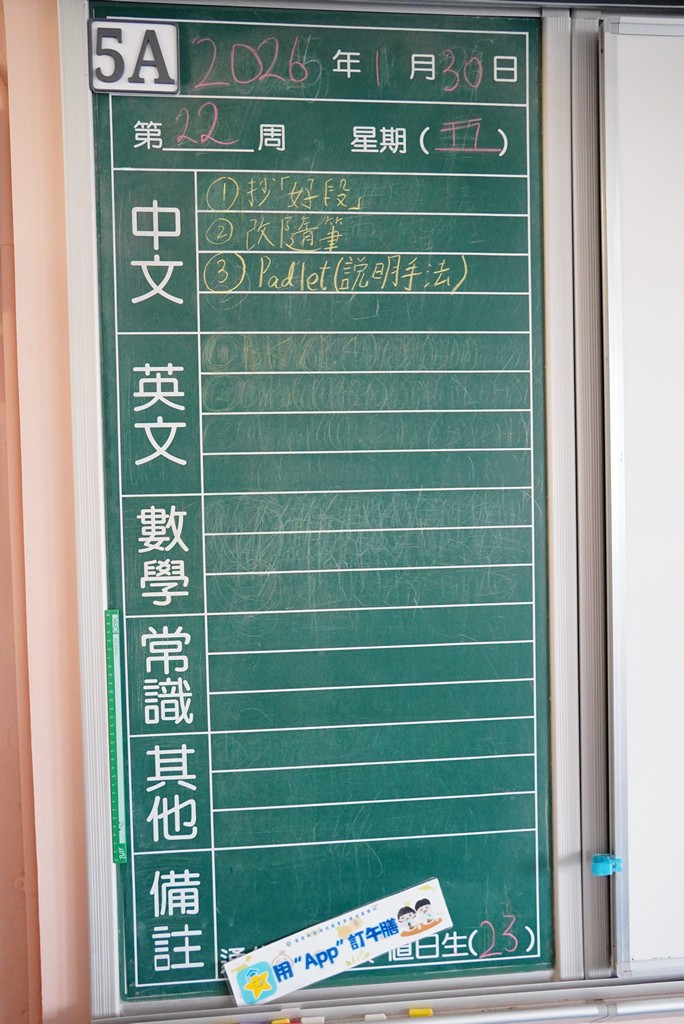 5A
2026年1月30日
第22周 星期(五)
中文
①抄「好段」
②改隨筆
③Padlet(說明手法)
英文
數學
常識
其他
備註
用“App”訂午膳
值日生(23)